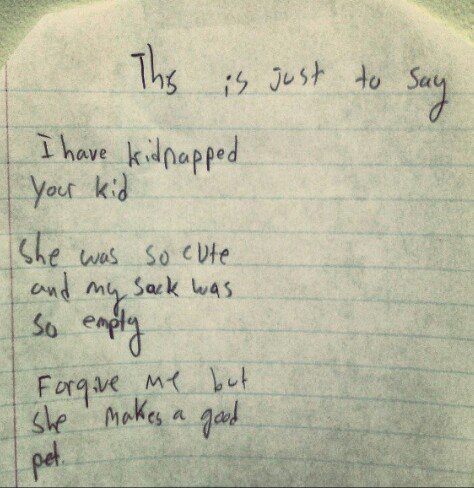 This is just to say
I have kidnapped
your kid
She was so cute
and my sack was
so empty
Forgive me but
she makes a good
pet.